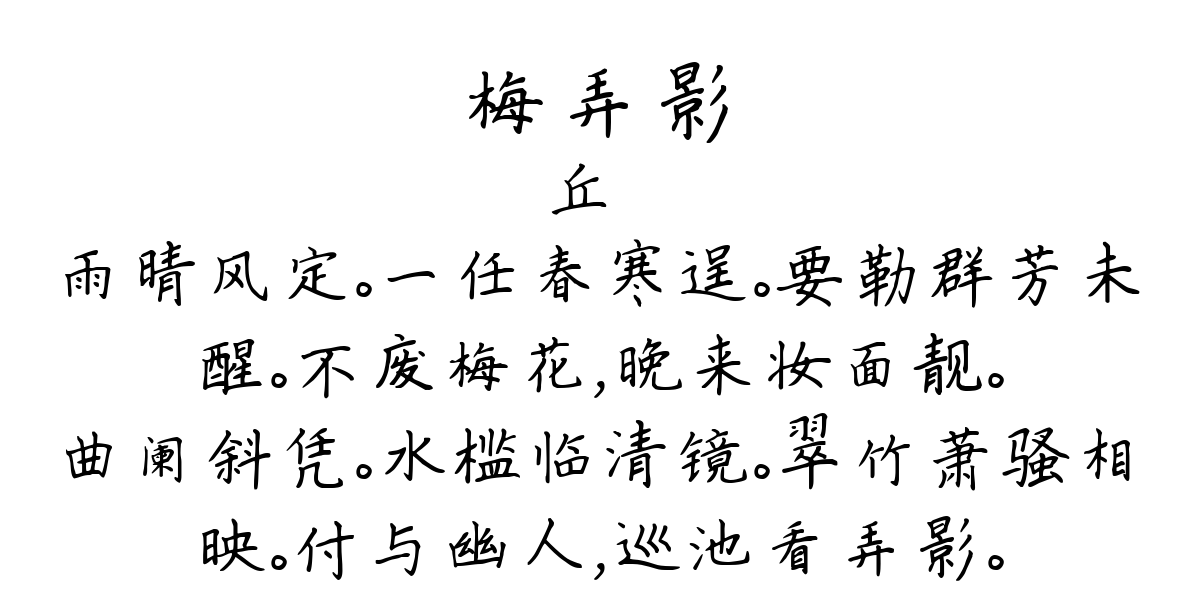 梅弄影
丘
雨晴风定。一任春寒逞。要勒群芳未
醒。不废梅花,晚来妆面靓。
曲阑斜凭。水槛临清镜。翠竹萧骚相
映。付与幽人,巡池看弄影。